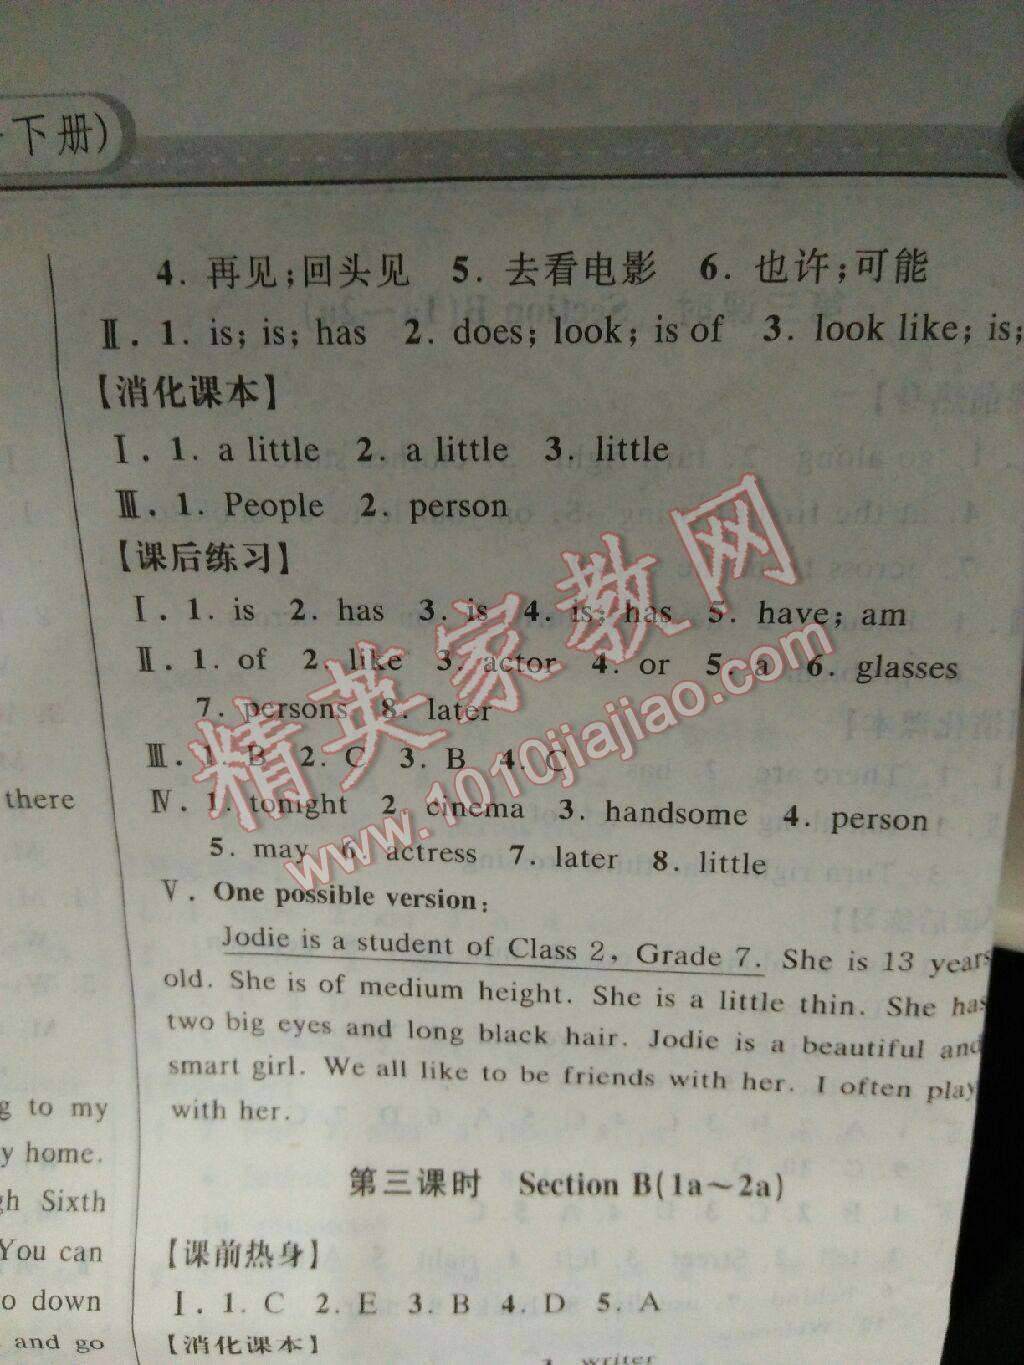 下册)
4. 再见;回头见 5. 去看电影 6. 也许;可能
Ⅱ. 1. is; is; has 2. does; look; is of 3. look like; is;
【消化课本】
Ⅰ. 1. a little 2. a little 3. little
Ⅲ. 1. People 2. person
【课后练习】
Ⅰ. 1. is 2. has 3. is 4. is; has 5. have; am
Ⅱ. 1. of 2. like 3. actor 4. or 5. a 6. glasses
7. persons 8. later
Ⅲ. 1. B 2. C 3. B 4. C
Ⅳ. 1. tonight 2. cinema 3. handsome 4. person
5. may 6. actress 7. later 8. little
Ⅴ. One possible version:
Jodie is a student of Class 2, Grade 7. She is 13 years
old. She is of medium height. She is a little thin. She has
two big eyes and long black hair. Jodie is a beautiful and
smart girl. We all like to be friends with her. I often play
with her.
第三课时 Section B(1a~2a)
【课前热身】
Ⅰ. 1. C 2. E 3. B 4. D 5. A
【消化课本】
writer
there
to my
home.
Sixth
You can
down
and go
精英家教网
www.1010jiajiao.com